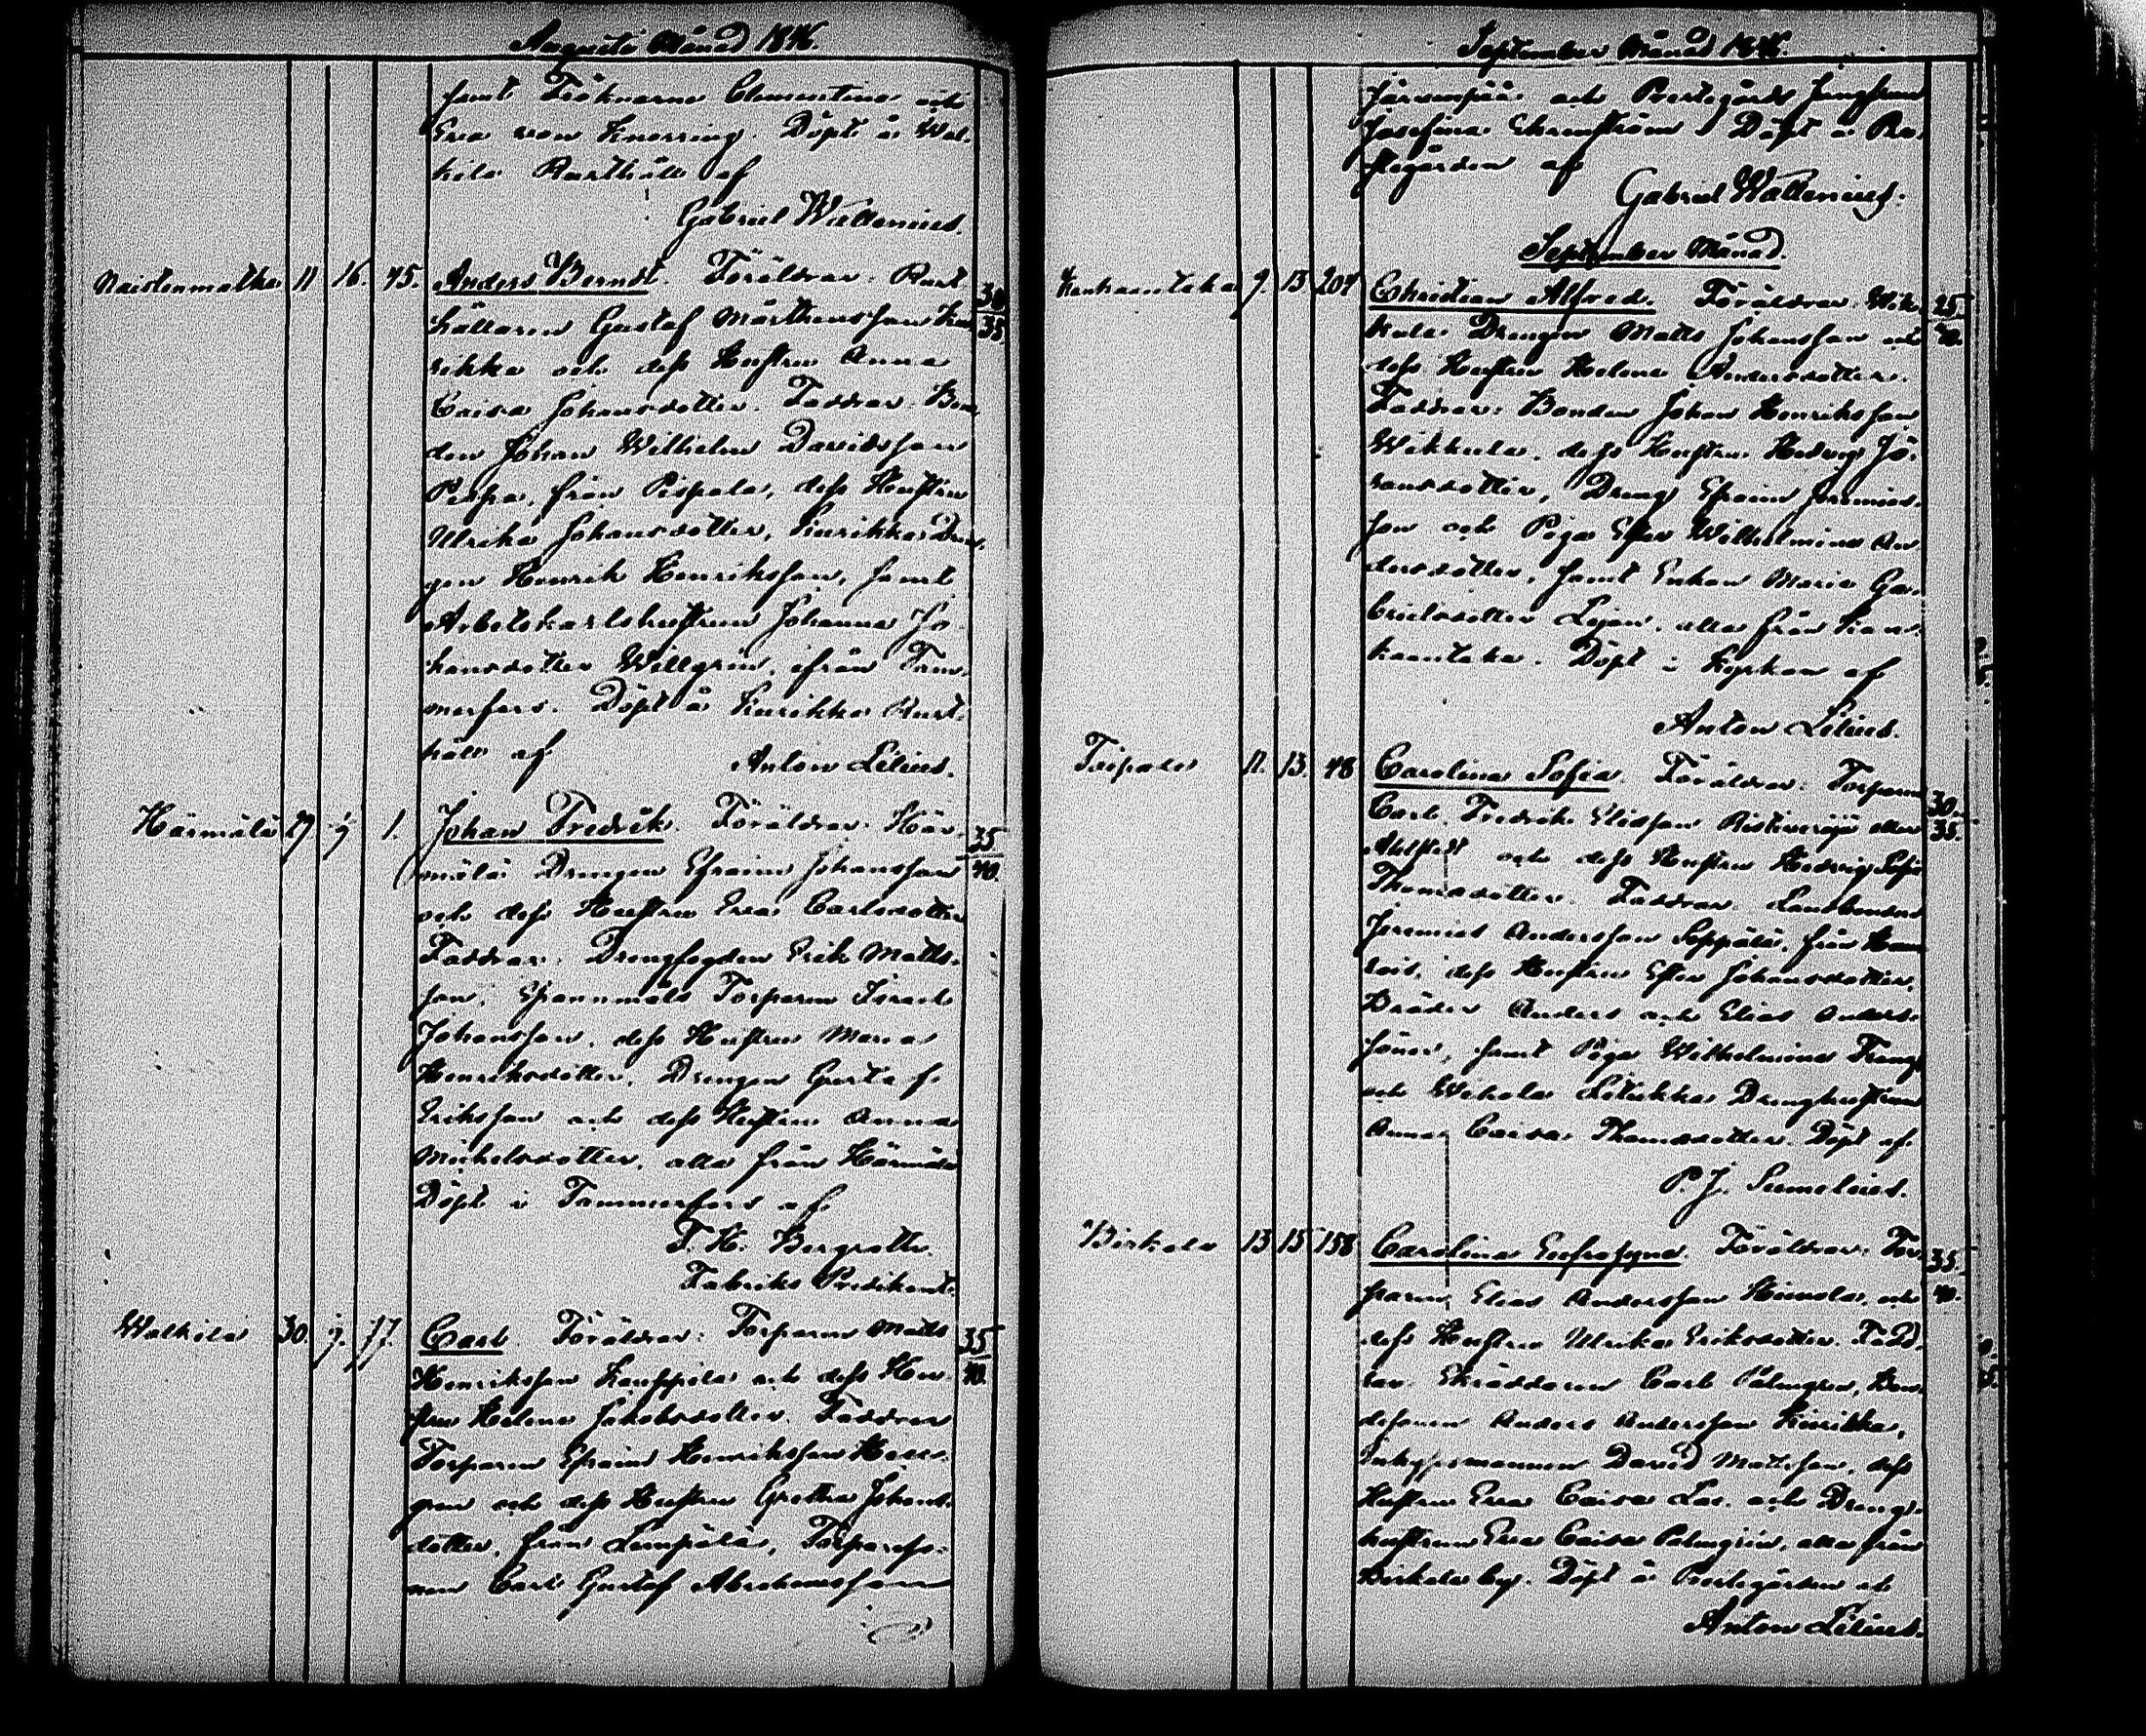 Augusti Månad 1846.
samt Fröknarne Clementine och
Eva von Knorring. Döpt å Wal-
kila Rusthåll af
Gabriel Wallenius.
Naistenmatka 11 16. 45. Anders Berndt. Föräldrar: Rust 30
hållaren Gustaf Mårthensson Ku 35
rikka och dess Hustru Anna
Caisa Johansdotter. Faddrar: Bon
den Johan Wilhelm Davidsson
Pispa, från Pispala, dess Hustru
Ulrika Johansdotter, Kurikka Dren-
gen Henrik Henriksson, samt
Arbetskarlshustrun Johanna Jo
hansdotter Willgrén, ifrån Tam-
merfors. Döpt å Kurikka Rust-
håll af Anton Lilius.
Härmälä 27 9 1. Johan Fredrik. Föräldrar: Här- 35
mälä Drengen Efraim Johansson 40.
och dess Hustru Eva Carlsdotter
Faddrar: Drengfogden Erik Matts-
son, Torparen Israel
Johansson, dess Hustru Maria
Henriksdotter, Drengen Gustaf
Eriksson och dess Hustru Anna
Michelsdotter, alla från Härmälä
Döpt i Tammerfors af
F. H. Bergroth.
Fabriks Predikant.
Walkila 30. 9. 77. Carl. Föräldrar: Torparen Matts 35
Henriksson Kauppila och dess Hu- 40.
stru Helena Jakobsdotter. Faddrar
Torparen Efraim Henriksson
gren och dess Hustru Gretha Johans
dotter, från Lempälä, Torpareso-
nen Carl Gustaf Abrahamsson
September Månad 1846.
Järvenpää och Prestgårds Jungfrun
Josefina Ehrnström. Döpt å Pre-
stgården af
Gabriel Wallenius.
September Månad.
Kankaantaka 9. 13 207 Christian Alfred. Föräldrar: Wik- 25
kula Drengen Matts Johansson och 40.
dess Hustru Helena Andersdotter.
Faddrar: Bonden Johan Henriksson
Wikkula, dess Hustru Hedvig Jo-
hansdotter, Dreng Efraim Jeremias-
son och Piga Ester Wilhelmina An
dersdotter, samt Enkan Maria Ga-
brielsdotter Lojan, alla från Kan-
kaantaka. Döpt i Kyrkan af
Anton Lilius.
Toipale 11. 13. 48 Carolina Sofia. Föräldrar: Torparen 30.
Carl Fredrik Eliasson eller 35.
och dess Hustru Hedvig Sofia
Thomasdotter. Faddrar: Landbonden
Jeremias Andersson Seppälä, från
dess Hustru Ester Johansdotter,
Bröder Anders och Elias Anders-
söner, samt Piga Wilhelmina
och Wihola Litukka Drenghustrun
Anna Caisa Thomasdotter. Döpt af
P. J. Sumelius.
Birkala 13 15 158 Carolina Eufrosyne. Föräldrar: Tor- 35.
paren Elias Andersson Heinola, och 40.
dess Hustru Ulrika Eriksdotter. Fadd-
rar: Skräddaren Carl Palmgren, Bon-
desonen Anders Andersson Kurikka,
Inhysesmannen David Mattsson, dess
Hustru Eva Caisa och Dreng-
hustrun Eva Caisa Palmgrén, alla från
Birkala by. Döpt å Prestgården af
Anton Lilius.